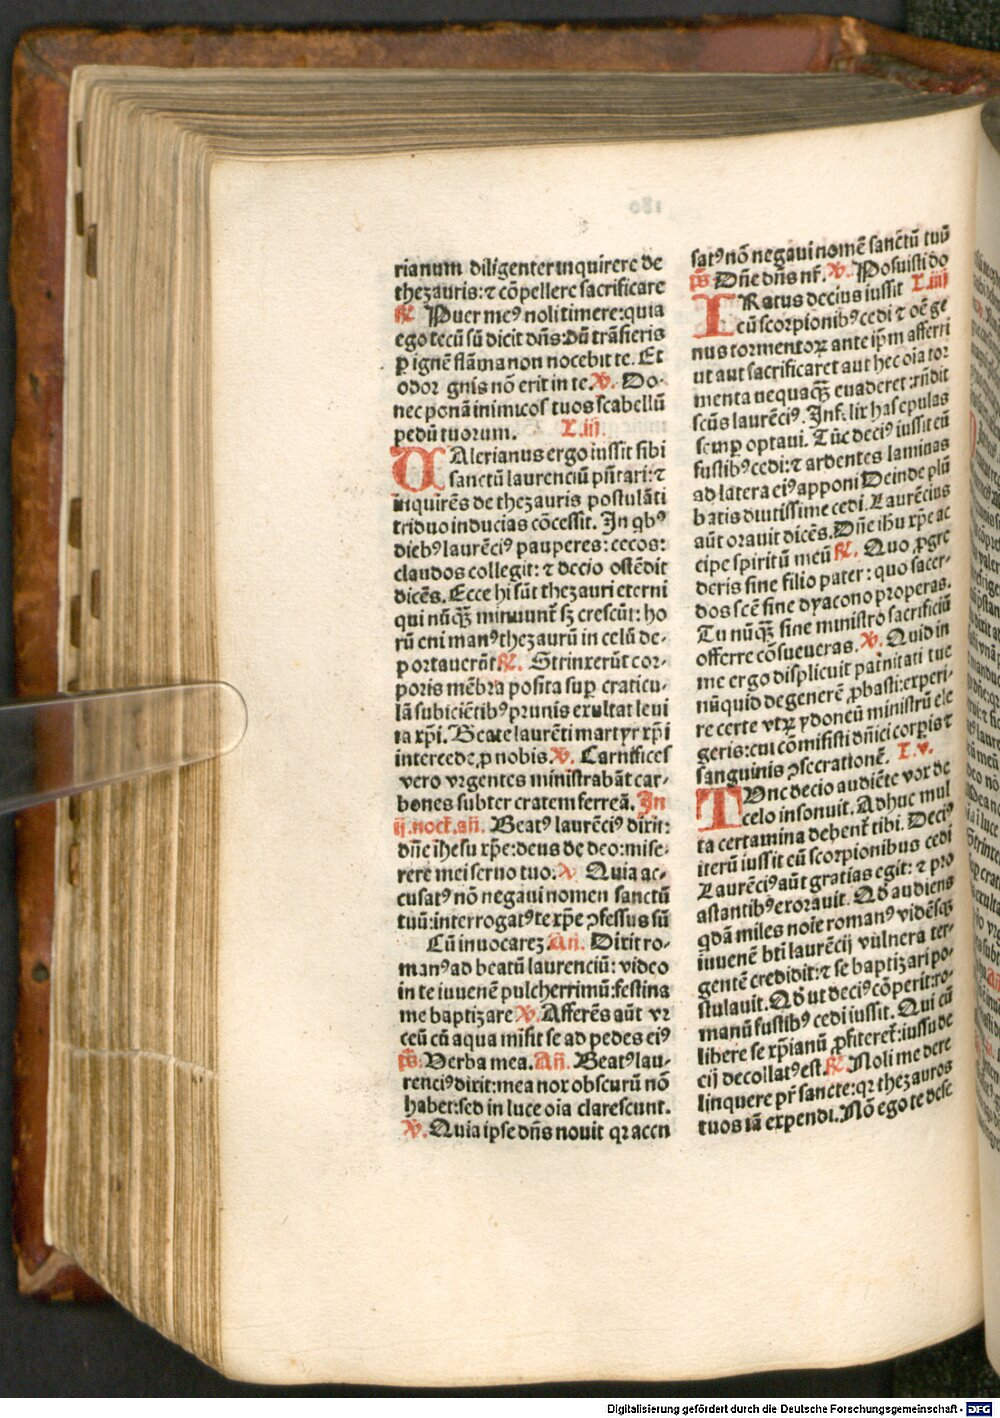 rianum diligenter inquirere de
thezauris: ⁊ cōpellere sacrificare
R̷. Puer meꝰ noli timere: quia
ego tecū sū dicit dn̄s: dū trāsieris
ꝑ ignē flāma non nocebit te. Et
odor gnis nō erit in te. V̷. Do-
nec ponā inimicos tuos scabellū
pedū tuorum. L. iij.
VAlerianus ergo iussit sibi
sanctū laurenciū pn̄tari: ⁊
inquirēs de thezauris postulāti
triduo inducias cōcessit. In qbꝰ
diebꝰ laurēciꝰ pauperes: cecos:
claudos collegit: ⁊ decio ostēdit
dicēs. Ecce hi sūt thezauri eterni
qui nūqꝫ minuunt̄ sꝫ crescūt: ho
rū eni manꝰ thezaurū in celū de-
portauerūt R̷. Strinxerūt cor-
poris mēbra posita suꝑ craticu-
lā subiciētibꝰ prunis exultat leui
ta xp̄i. Beate laurēti martyr xp̄i
intercede ꝓ nobis. V̷. Carnifices
vero vrgentes ministrabāt car-
bones subter cratem ferreā. In
ij. noct̄. an̄. Beatꝰ laurēciꝰ dixit:
dn̄e ih̄esu xp̄e: deus de deo: mise-
rere mei seruo tuo. V̷ Quia ac-
cusatꝰ nō negaui nomen sanctū
tuū: interrogatꝰ te xp̄e ꝯfessus sū
Cū inuocareꝫ An̄. Dixit ro-
manꝰ ad beatū laurenciū: video
in te iuuenē pulcherrimū: festina
me baptizare V̷. Afferēs aūt vr
ceū cū aqua misit se ad pedes eiꝰ
ps̄. Verba mea. An̄. Beatꝰ lau-
renciꝰ dixit: mea nox obscurū nō
habet: sed in luce oīa clarescunt.
V̷. Quia ipse dn̄s nouit qꝛ accu
satꝰ nō negaui nomē sanctū tuū
ps̄ Dn̄e dn̄s nr̄. V̷. Posuisti do
IRatus decius iussit L. iiij
cū scorpionibꝰ cedi ⁊ oē ge
nus tormentoꝝ ante ip̄m afferri
ut aut sacrificaret aut hec oīa tor
menta nequaqꝫ euaderet: rn̄dit
scūs laurēciꝰ. Infelix has epulas
semꝑ optaui. Tūc deciꝰ iussit eū
fustibꝰ cedi: ⁊ ardentes laminas
ad latera eiꝰ apponi Deinde plū
batis diutissime cedi. Laurēcius
aūt orauit dicēs. Dn̄e ihu xp̄e ac
cipe spiritū meū R̷. Quo ꝓgre
deris sine filio pater: quo sacer-
dos scē sine dyacono properas.
Tu nūqꝫ sine ministro sacrificiū
offerre cōsueueras. V̷. Quid in
me ergo displicuit pat̄nitati tue
nūquid degenerē ꝓbasti: experi-
re certe vtꝝ ydoneū ministrū ele
geris: cui cōmisisti dn̄ici corꝑis ⁊
sanguinis ꝯsecrationē. L. v.
TUnc decio audiēte vox de
celo insonuit. Adhuc mul
ta certamina debent̄ tibi. Deciꝰ
iterū iussit eū scorpionibus cedi
Laurēciꝰ aūt gratias egit: ⁊ pro
astantibꝰ exorauit. Qd̄ audiens
qdā miles noīe romanꝰ vidēsqꝫ
iuuenē btī laurēcij vulnera ter-
gentē credidit: ⁊ se baptizari po-
stulauit. Qd̄ ut deciꝰ cōperit: ro-
manū fustibꝰ cedi iussit. Qui cū
libere se xp̄ianū ꝓfiteret̄: iussu de
cij decollatꝰ est. R̷ Noli me dere
linquere pr̄ sancte: qꝛ thezauros
tuos iā expendi. Nō ego te dese
Digitalisierung gefördert durch die Deutsche Forschungsgemeinschaft - DFG